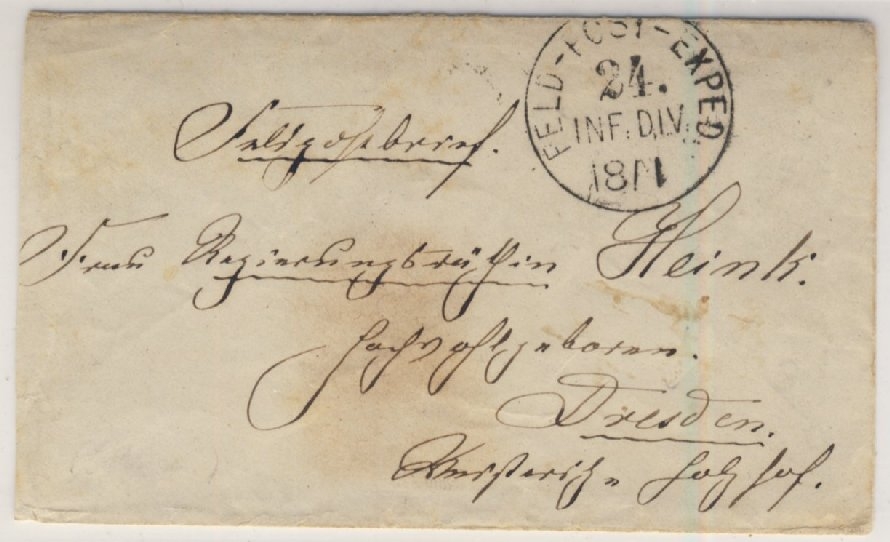 FELD-POST-EXPED.
24.
INF. DIV.
18 11
Feldpostbrief.
Frau Regierungsräthin Heink.
Hochwohlgeboren.
Dresden.
Holzhof.